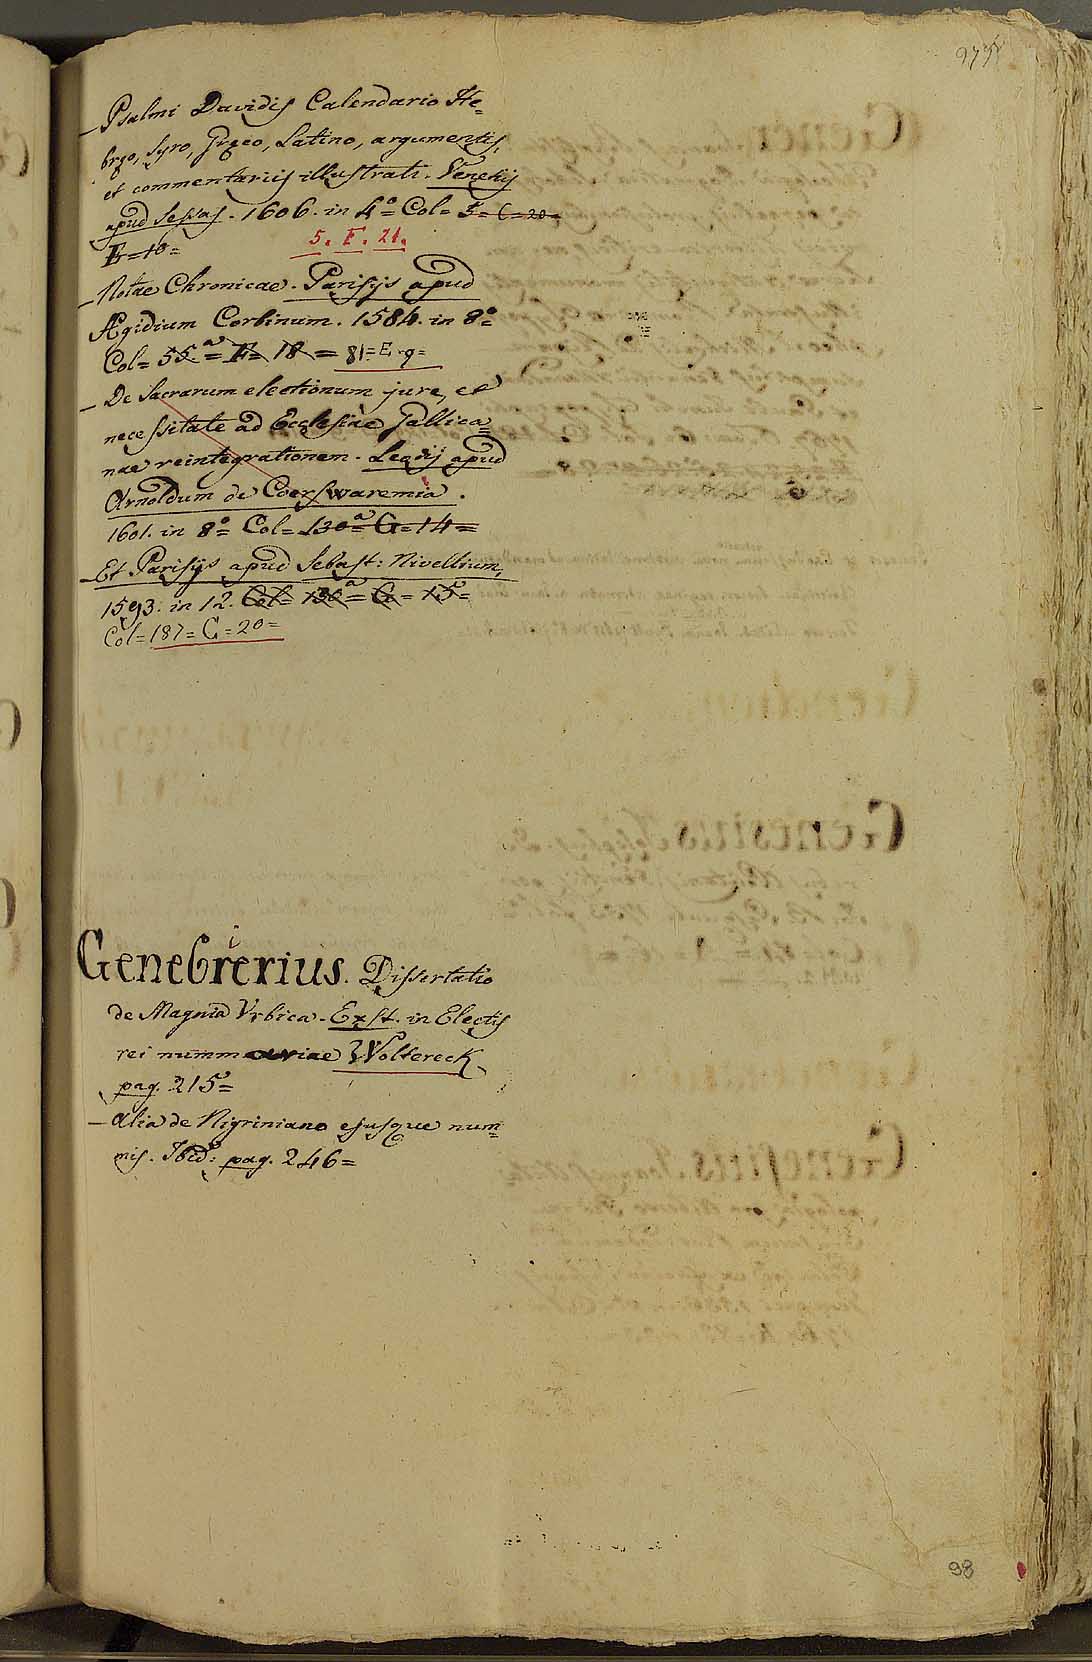 – Psalmi Davidis Calendario He=
bręo, Syro, Gręco, Latino, argumentis,
et commentariis illustrati. Venetijs
apud Sessas. 1606. in 4º Col= 5= C= 20=
E=16=
5. F. 21.
– Notae Chronicae. Parisijs apud
Ægidium Corbinum. 1584. in 8º=
Col= 55ª= F= 18 = 81= E. 9=
– De Sacrarum electionum jure, et
necessitate ad Ecclesiae Gallica=
nae reintegrationem. Leodij apud
Arnoldum de Coerswaremia.
1601. in 8º= Col= 130ª= G=14=
– Et Parisijs apud Sebast: Nivellium,
1593. in 12. Col= 130ª= G= 15=
Col=187= C=20=
Genebrerius. Dissertatio
i
de Magnia Vrbica. Exst. in Electis
rei nummariae Woltereck
pag. 215=
– Alia de Nigriniano ejusque num=
mis. Ibid: pag. 246=
98